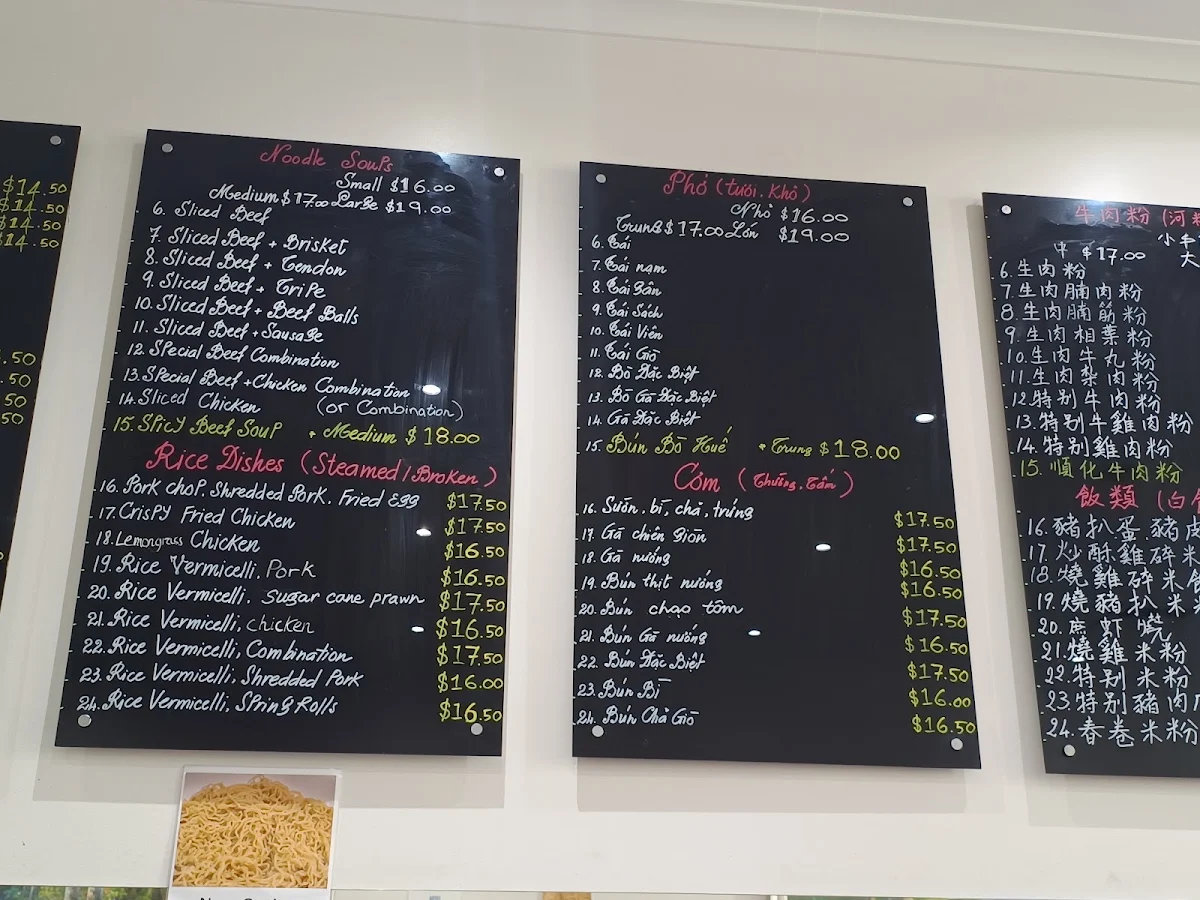 $14.50
$14.50
$14.50
$14.50
.50
.50
50
50
Noodle Soups
Small $16.00
Medium $17.00 Large $19.00
6. Sliced Beef
7. Sliced Beef + Brisket
8. Sliced Beef + Tendon
9. Sliced Beef + Tripe
10. Sliced Beef + Beef Balls
11. Sliced Beef + Sausage
12. Special Beef Combination
13. Special Beef + Chicken Combination
14. Sliced Chicken (or Combination)
15. Spicy Beef Soup • Medium $18.00
Rice Dishes (Steamed / Broken)
16. Pork chop, Shredded Pork, Fried egg $17.50
17. Crispy Fried Chicken $17.50
18. Lemongrass Chicken $16.50
19. Rice Vermicelli, Pork $16.50
20. Rice Vermicelli, sugar cane prawn $17.50
21. Rice Vermicelli, chicken $16.50
22. Rice Vermicelli, Combination $17.50
23. Rice Vermicelli, Shredded Pork $16.00
24. Rice Vermicelli, Spring Rolls $16.50
Phở (tươi, Khô)
Nhỏ $16.00
Trung $17.00 Lớn $19.00
6. Tái
7. Tái nạm
8. Tái Gân
9. Tái Sách
10. Tái Viên
11. Tái Giò
12. Bò Đặc Biệt
13. Bò Gà Đặc Biệt
14. Gà Đặc Biệt
15. Bún Bò Huế • Trung $18.00
Cơm (Thường, Tấm)
16. Sườn, bì, chả, trứng $17.50
17. Gà chiên giòn $17.50
18. Gà nướng $16.50
19. Bún thịt nướng $16.50
20. Bún chạo tôm $17.50
21. Bún Gà nướng $16.50
22. Bún Đặc Biệt $17.50
23. Bún Bì $16.00
24. Bún Chả Giò $16.50
牛肉粉 (河粉
小
中 $17.00 大
6. 生肉粉
7. 生肉腩肉粉
8. 生肉腩筋粉
9. 生肉柏葉粉
10. 生肉牛丸粉
11. 生肉紮肉粉
12. 特别牛肉粉
13. 特别牛雞肉粉
14. 特别雞肉粉
15. 順化牛肉粉
飯類 (白
16. 豬扒蛋豬皮
17. 炒酥雞碎米
18. 燒雞碎米飯
19. 燒豬扒米
20. 蔗虾燒
21. 燒雞米粉
22. 特别米粉
23. 特别豬肉
24. 春卷米粉